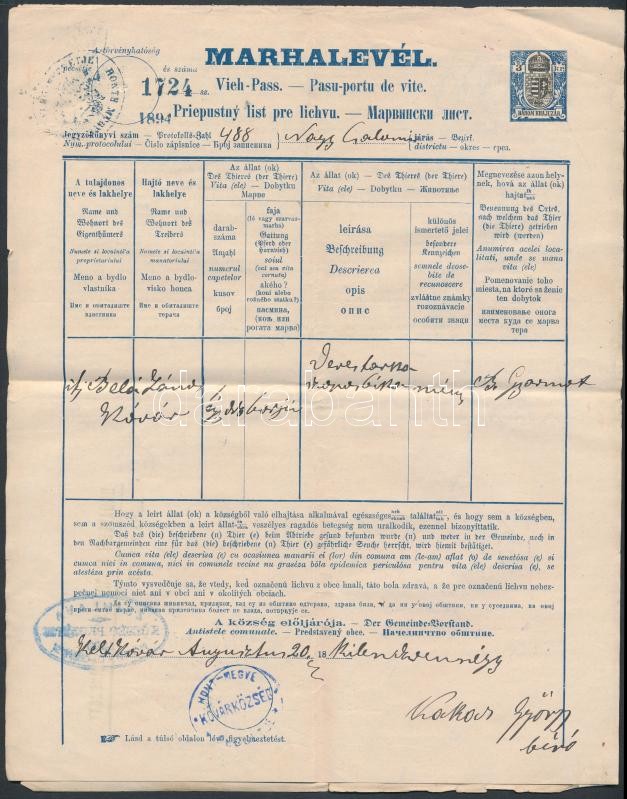 A törvényhatóság
pecsétje és száma
MARHALEVÉL.
1724 sz.
1894
Vieh-Pass. — Pasu-portu de vite.
Priepustný list pre lichvu. — Марвински лист.
3 kr
HÁROM KRAJCZÁR
Jegyzőkönyvi szám — Protokolls-Zahl 488 járás — Bezirk.
Nym. protocolului — Číslo zápisnice — Број записника districtu — okres — срез.
A tulajdonos
neve és lakhelye
Name und
Wohnort des
Eigenthümers
Numele si locuint'a
proprietariului
Meno a bydlo
vlastníka
Име и обиталиште
власника
Hajtó neve és
lakhelye
Name und
Wohnort des
Treibers
Numele si locuint'a
manatoriului
Meno a bydlo-
visko honca
Име и обиталиште
терача
Az állat (ok)
Des Thieres (der Thiere)
Vita (ele) — Dobytku
Марве
darab-
száma
Anzahl
numerul
capetelor
kusov
број
faja
(ló vagy szarvas-
marha)
Gattung
(Pferd oder
Hornvieh)
soiul
(cal sau vita
cornuta)
akého?
(koni alebo
rožného statku?)
пасмина,
(коњ или
рогата марва)
Az állat (ok) — Des Thieres (der Thiere)
Vita (ele) — Dobytku — Животиње
leírása
Beschreibung
Descrierea
opis
опис
különös
ismertető jelei
besondere
Kennzeichen
semnele deose-
bite de
recunoscere
zvláštne známky
rozoznávacie
особити знаци
Megnevezése azon hely-
nek, hová az állat (ok)
hajtatik
Benennung des Ortes,
nach welchem das Thier
(die Thiere) getrieben
wird (werden)
Anumirea acelei loca-
litati, unde se mana
vita (ele)
Pomenovanie toho
miesta, na ktoré sa ženie
ten dobytok
наименовање онога
места куда се марва
тера
Kóvár
Gyarmat
Hogy a leirt állat (ok) a községből való elhajtása alkalmával egészségesnek találtatott, és hogy sem a községben,
sem a szomszéd községekben a leirt állatra veszélyes ragadós betegség nem uralkodik, ezennel bizonyíttatik.
Daß das (die) beschriebene (n) Thier (e) beim Abtriebe gesund befunden wurde (n) und weder in der Gemeinde, noch in
den Nachbargemeinden eine für das (die) beschriebene (n) Thier (e) gefährliche Seuche herrscht, wird hiemit bestätiget.
Cumca vita (ele) descrisa (e) cu ocasiunea manarii ei (lor) din comuna am (le-am) aflat (o) de senetósa (e) si
cumca nici in comuna, nici in comunele vecine nu graséza bóla epidemica periculósa pentru vita (ele) descrisa (e), se
atesteza prin acést'a.
Týmto vysvedčuje sa, že vtedy, keď označenú lichvu z obce hnali, táto bola zdravá, a že pre označenú lichvu nebez-
pečnej nemoci niet ani v obci ani v okolitých obciach.
A község előljárója. — Der Gemeinde-Vorstand.
Antistele comunale. — Predstavený obce. — Началничтво обштине.
Kelt Kóvár Augusztus 20 18 kilenczvennégy
HONT-MEGYE
KÓVÁRKÖZSÉG
György
biró
Lásd a túlsó oldalon lévő figyelmeztetést.
darabanth